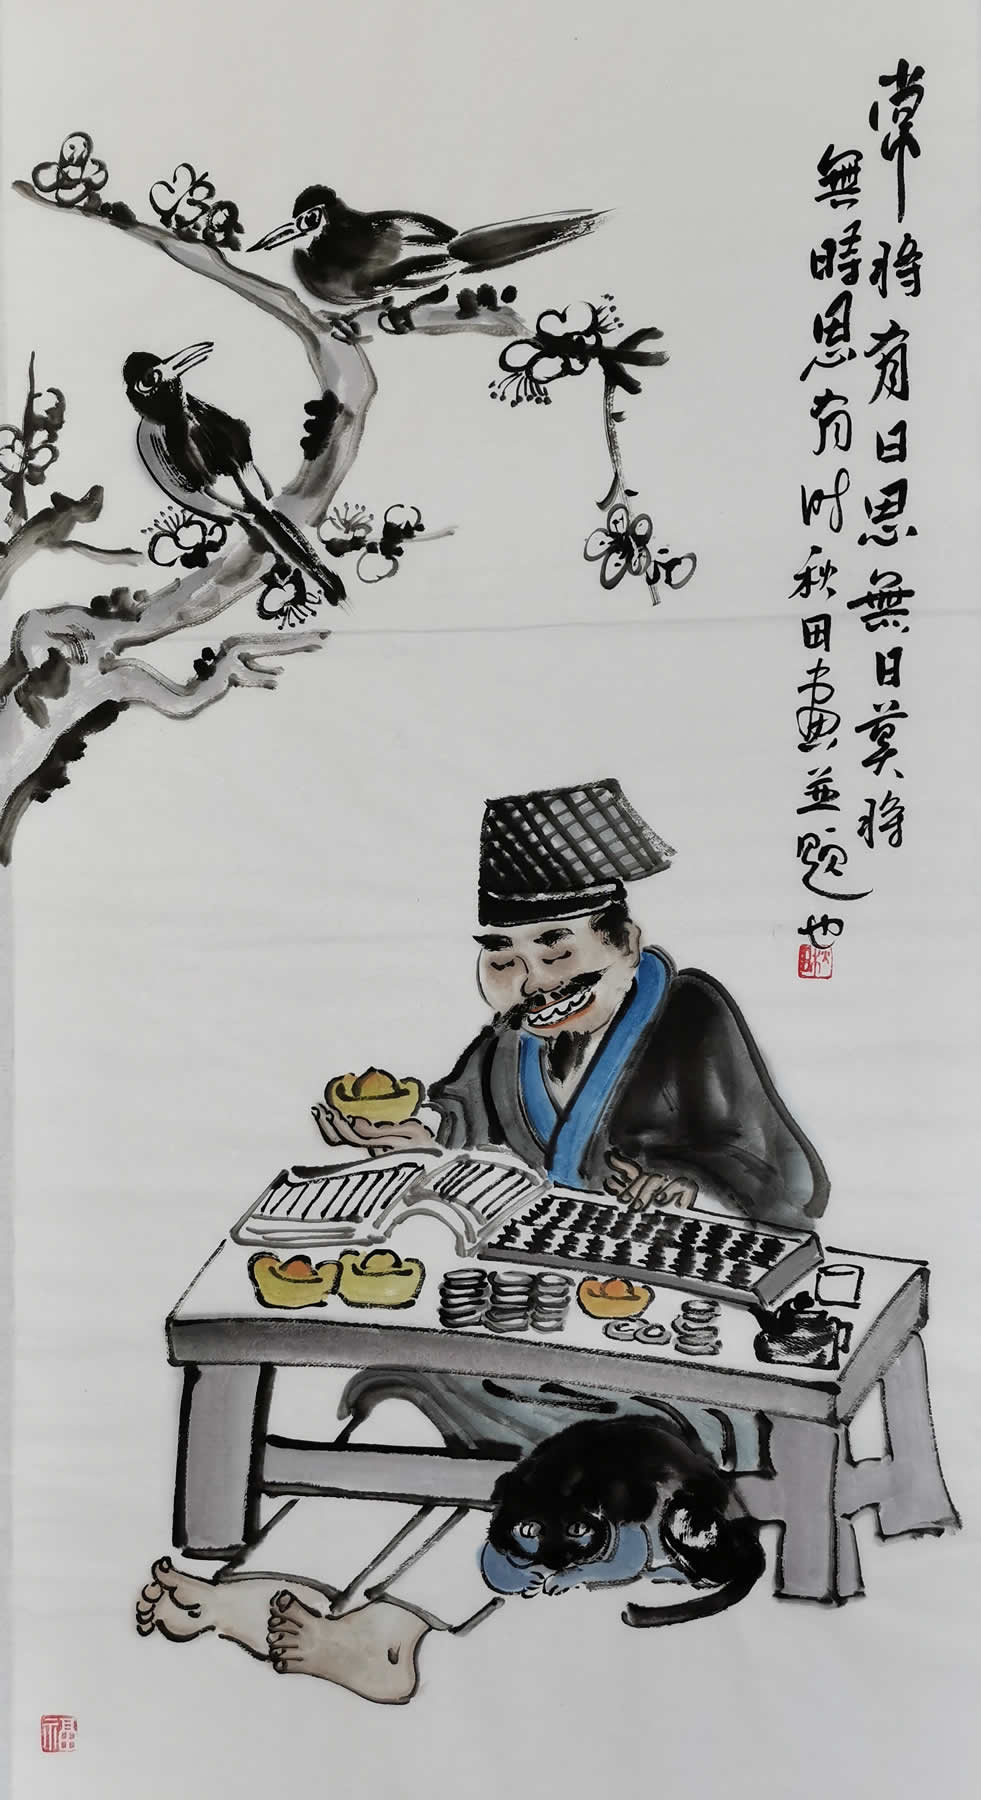 常將有日思無日莫將
無時思有时秋田畫並題也
福